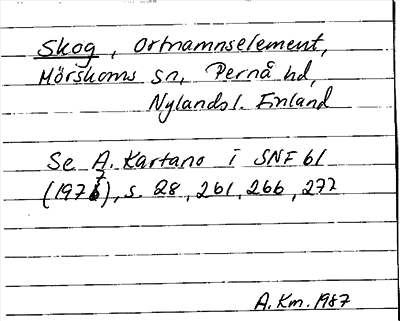 Skog, Ortnamnselement,
Mörskoms sn, Pernå hd,
Nylands l. Finland
Se A. Kartano i SNF 61
(1977), s. 28, 261, 266, 272
A. Km. 1987